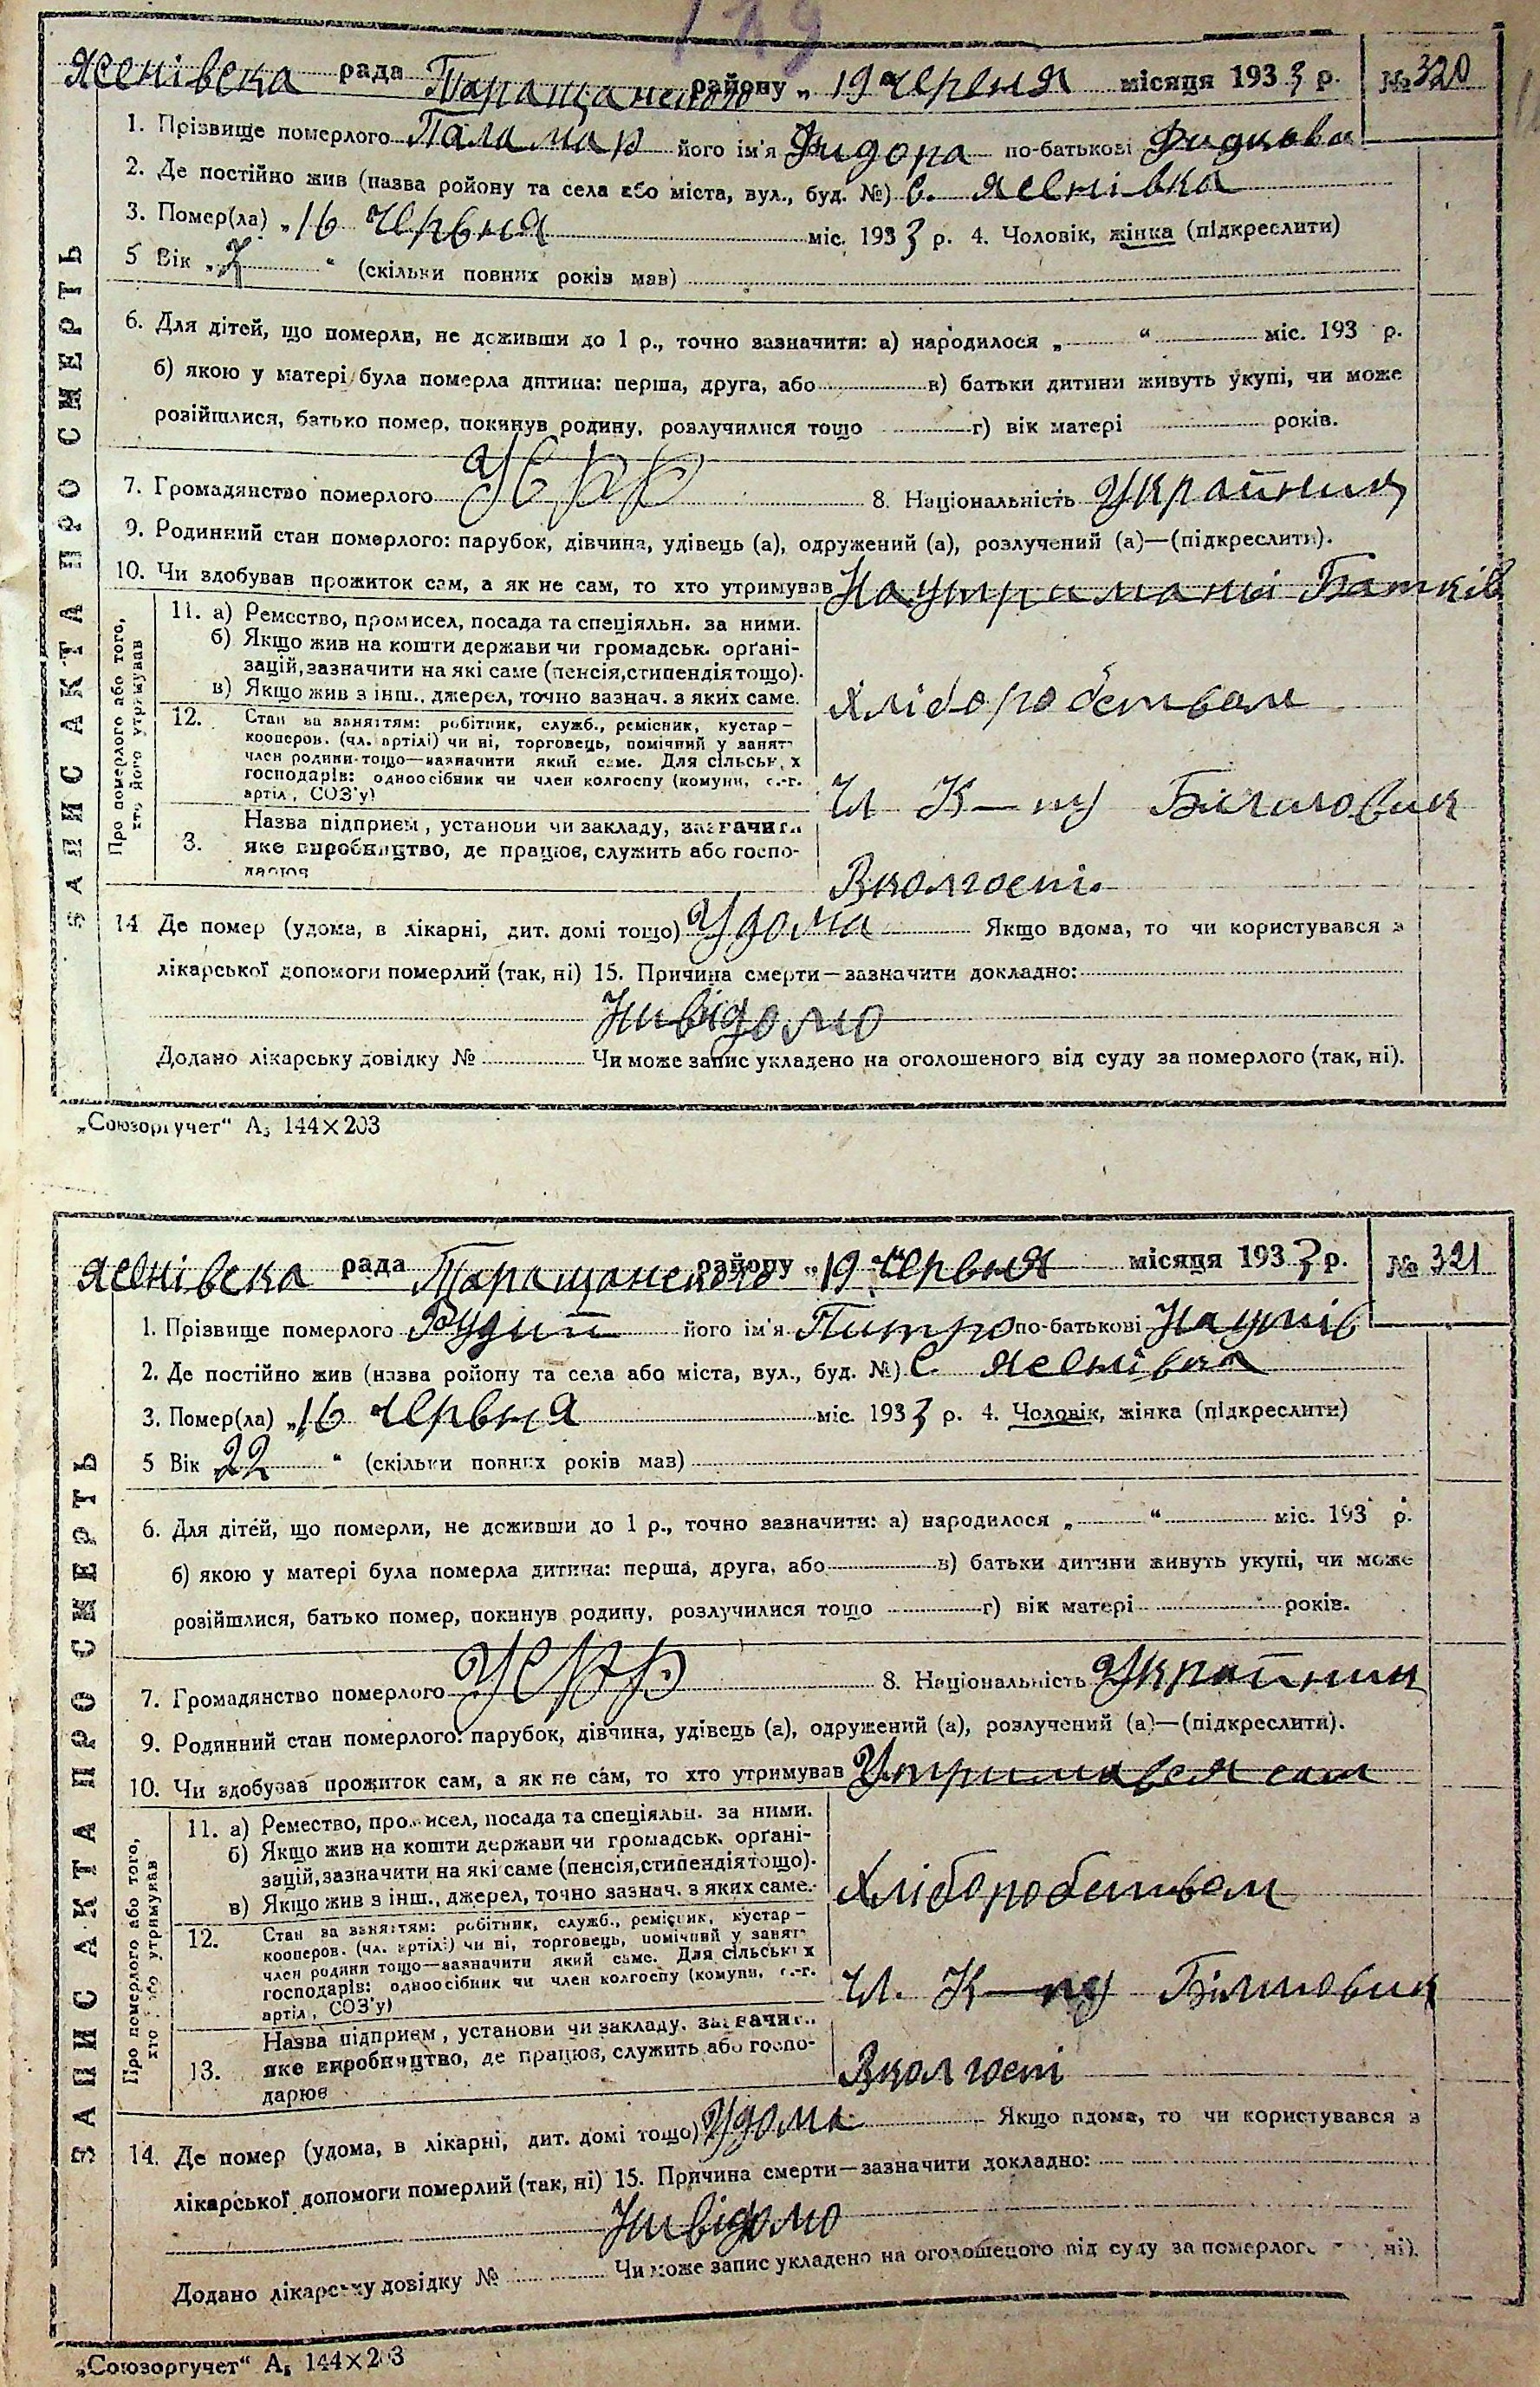 119
Ясенівска рада Таращанського району „ 19 " червня місяця 1933 р. № 320
1. Прізвище померлого Паламар його ім'я по-батькові
2. Де постійно жив (назва ройону та села або міста, вул., буд. №) с. Ясенівка
3. Помер(ла) „ 16 червня міс. 1933 р. 4. Чоловік, жінка (підкреслити)
5 Вік „ 7 “ (скільки повних років мав)
6. Для дітей, що померли, не доживши до 1 р., точно зазначити: а) народилося „ “ міс. 193 р.
б) якою у матері була померла дитина: перша, друга, або в) батьки дитини живуть укупі, чи може
розійшлися, батько помер, покинув родину, розлучилися тощо г) вік матері років.
7. Громадянство померлого УСРР 8. Національність Україниц
9. Родинний стан померлого: парубок, дівчина, удівець (а), одружений (а), розлучений (а)—(підкреслити).
10. Чи здобував прожиток сам, а як не сам, то хто утримував На утриманні Батків
ЗАПИС АКТА ПРО СМЕРТЬ
Про померлого або того, хто його утримував
11. а) Ремество, промисел, посада та спеціяльн. за ними.
б) Якщо жив на кошти держави чи громадськ. орґані-
зацій, зазначити на які саме (пенсія, стипендія тощо).
в) Якщо жив з інш., джерел, точно зазнач. з яких саме. Хліборобством
12. Стан за заняттям: робітник, служб., ремісник, кустар—
кооперов. (чл. артілі) чи ні, торговець, помічний у занят
член родини тощо—зазначити який саме. Для сільськ х
господарів: одноосібник чи член колгоспу (комуни, с.-г.
артіл, СОЗ'у) Чл К—пу Більшовик
3. Назва підприєм, установи чи закладу, зазначити
яке виробництво, де працює, служить або госпо-
дарює В колгоспі
14 Де помер (удома, в лікарні, дит. домі тощо) Удома Якщо вдома, то чи користувався з
лікарської допомоги померлий (так, ні) 15. Причина смерти—зазначити докладно:
Нивідомо
Додано лікарську довідку № Чи може запис укладено на оголошеного від суду за померлого (так, ні).
„Союзоргучет“ А₅ 144×203
Ясенівска рада Таращанського району „ 19 " червня місяця 1933 р. № 321
1. Прізвище померлого Рудий його ім'я Питро по-батькові Наумів
2. Де постійно жив (назва ройону та села або міста, вул., буд. №) С. Ясенівка
3. Помер(ла) „ 16 червня міс. 1933 р. 4. Чоловік, жінка (підкреслити)
5 Вік 22 “ (скільки повних років мав)
6. Для дітей, що померли, не доживши до 1 р., точно зазначити: а) народилося „ “ міс. 193 р.
б) якою у матері була померла дитина: перша, друга, або в) батьки дитини живуть укупі, чи може
розійшлися, батько помер, покинув родину, розлучилися тощо г) вік матері років.
7. Громадянство померлого УСРР 8. Національність Україниц
9. Родинний стан померлого: парубок, дівчина, удівець (а), одружений (а), розлучений (а)—(підкреслити).
10. Чи здобував прожиток сам, а як не сам, то хто утримував Утримався сам
ЗАПИС АКТА ПРО СМЕРТЬ
Про померлого або того, хто його утримував
11. а) Ремество, промисел, посада та спеціяльн. за ними.
б) Якщо жив на кошти держави чи громадськ. орґані-
зацій, зазначити на які саме (пенсія, стипендія тощо).
в) Якщо жив з інш., джерел, точно зазнач. з яких саме. Хліборобством
12. Стан за заняттям: робітник, служб., ремісник, кустар—
кооперов. (чл. артілі) чи ні, торговець, помічний у занят
член родини тощо—зазначити який саме. Для сільськ х
господарів: одноосібник чи член колгоспу (комуни, с.-г.
артіл, СОЗ'у) Чл. К—пу Білшовик
13. Назва підприєм, установи чи закладу, зазначит
яке виробництво, де працює, служить або госпо-
дарює В колгоспі
14. Де помер (удома, в лікарні, дит. домі тощо) Удома Якщо вдома, то чи користувався з
лікарської допомоги померлий (так, ні) 15. Причина смерти—зазначити докладно:
Нивідомо
Додано лікарську довідку № Чи може запис укладено на оголошеного від суду за померлого ні).
„Союзоргучет“ А₅ 144×203